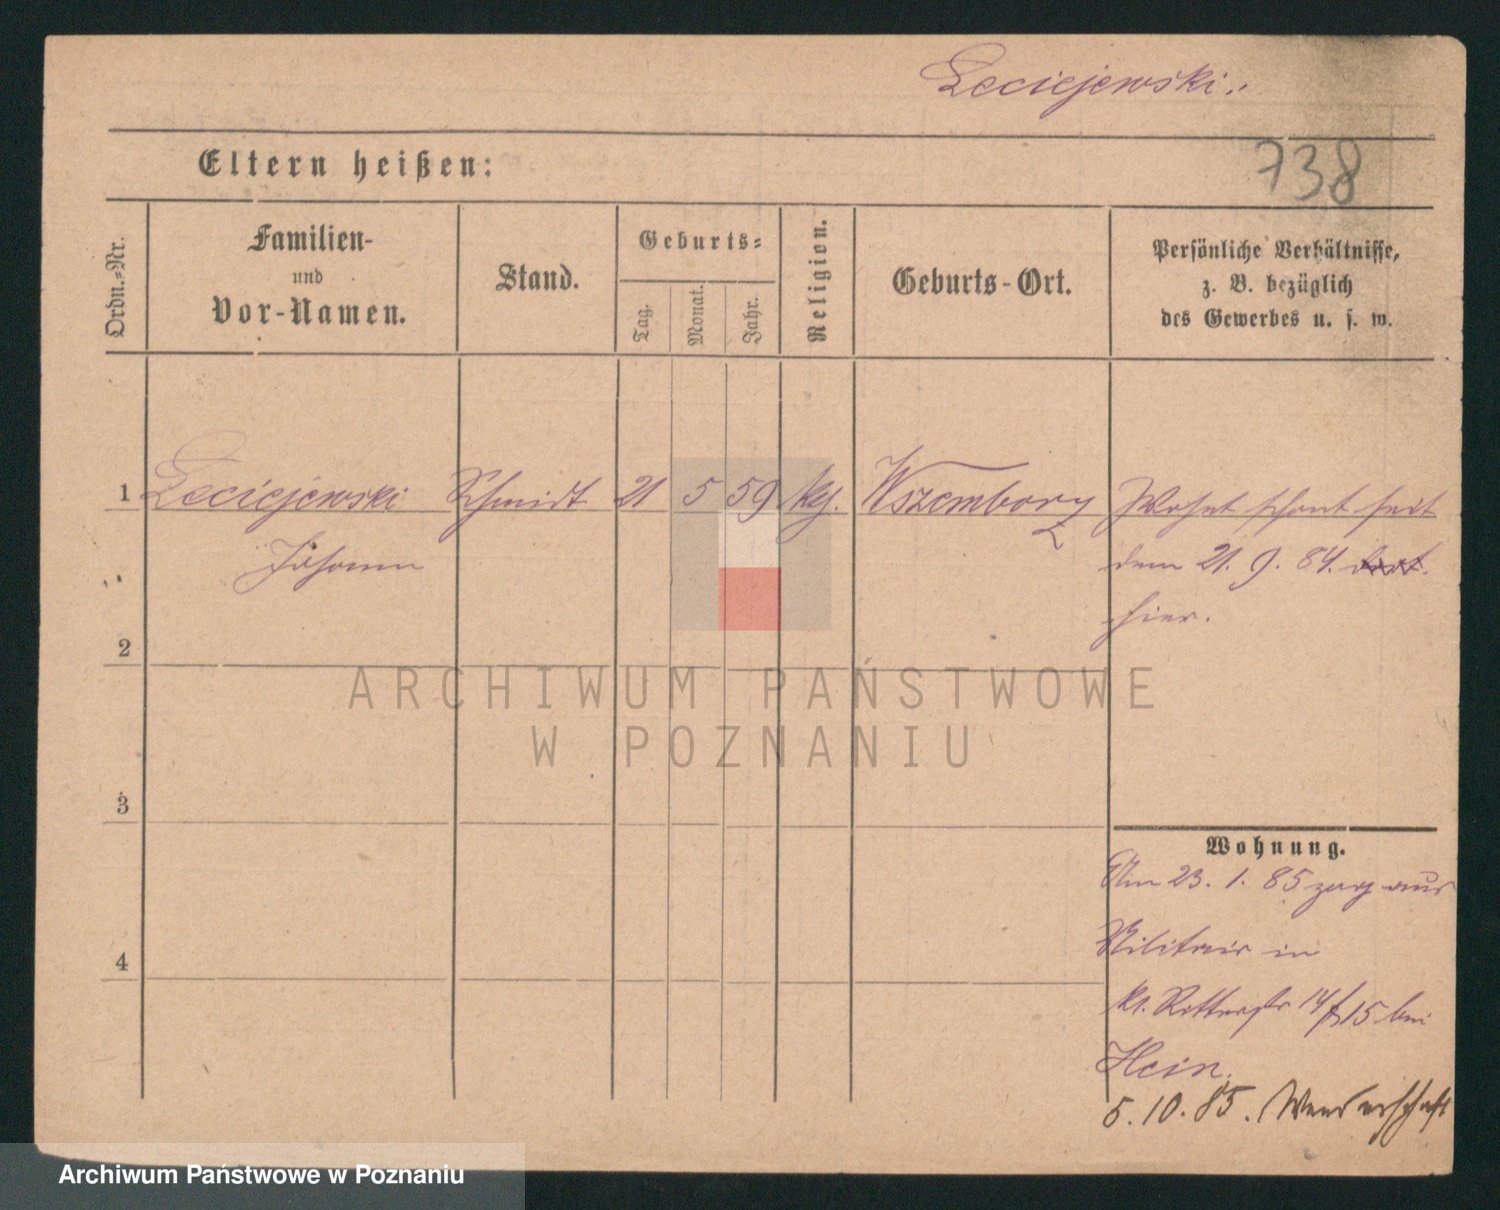 Leciejewski.
738
Eltern heißen:
Ordn.-Nr.
Familien-
und
Vor-Namen.
Stand.
Geburts-
Tag.
Monat.
Jahr.
Religion.
Geburts-Ort.
Persönliche Verhältnisse,
z. B. bezüglich
des Gewerbes u. s. w.
1 Leciejewski Schmidt 21 5 59 kg. Wszembory Wohnt schont seit
Johann dem 21. 9. 84. dort.
hier.
2
ARCHIWUM PAŃSTWOWE
W POZNANIU
3
Wohnung.
Am 23. 1. 85 zog aus
4
Militair in
kl. Ritterstr 14/15 bei
Hein.
5. 10. 85. Wanderschaft
Archiwum Państwowe w Poznaniu